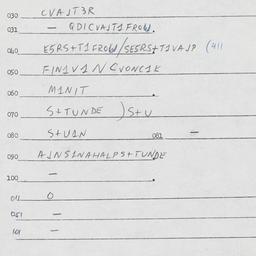 030 CVAJT3R
031 — QDICVAJT1 FROW.
040 E5RS+T1FROW/SE5RS+T1VAJP (411
050 FIN1V1NCVONC1K
060 M1NIT .
070 S+TUNDE )S+U
080 S+U1N 081 —
090 AJNS1NAHALPS+TUNDE
100 — .
011 0
051 —
101 —